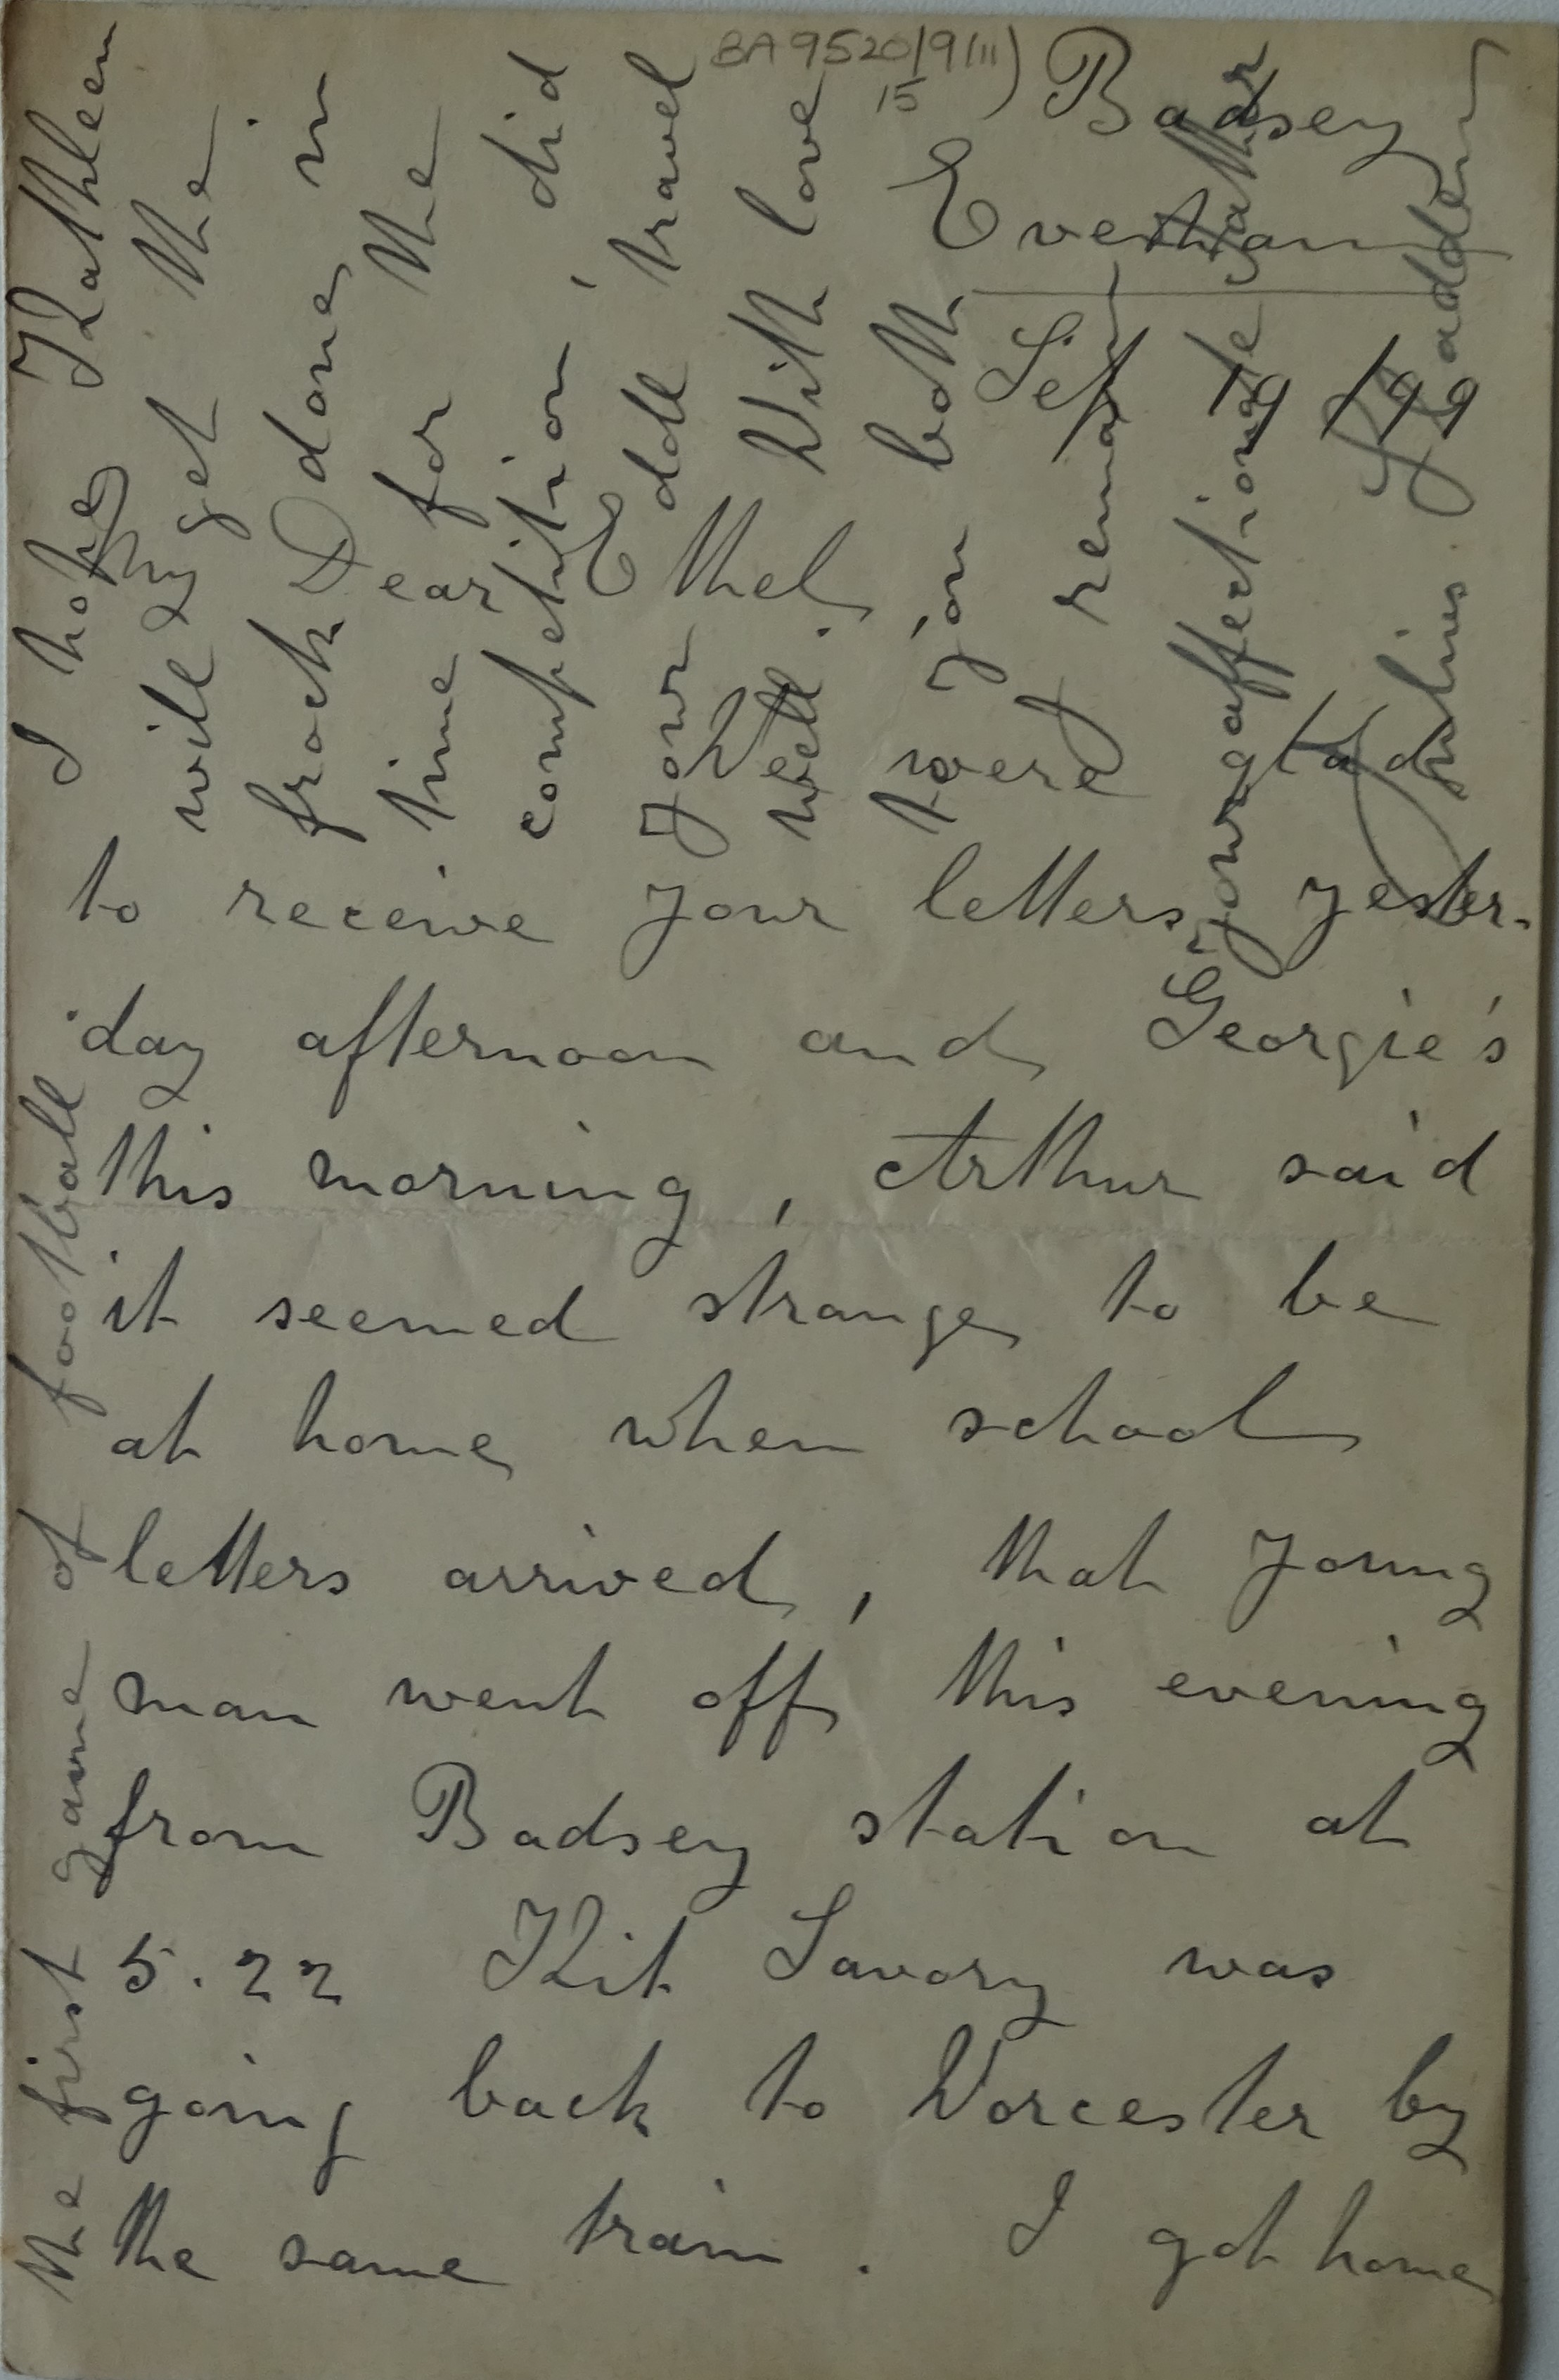 BA9520/9(iii)
15
Badsey
Evesham
Sep 19 / 99
My Dear Ethel
We were glad
to receive your letters yester-
day afternoon and Georgie's
this morning, Arthur said
it seemed strange to be
at home when school
letters arrived, that young
man went off this evening
from Badsey station at
5.22 Kit Savory was
going back to Worcester by
the same train. I got home
the first game of football
I hope Kathleen
will get the
frock done in
time for the
competition, did
your doll travel
well. With love
to you both
I remain
your affectionate father
Julius Sladden